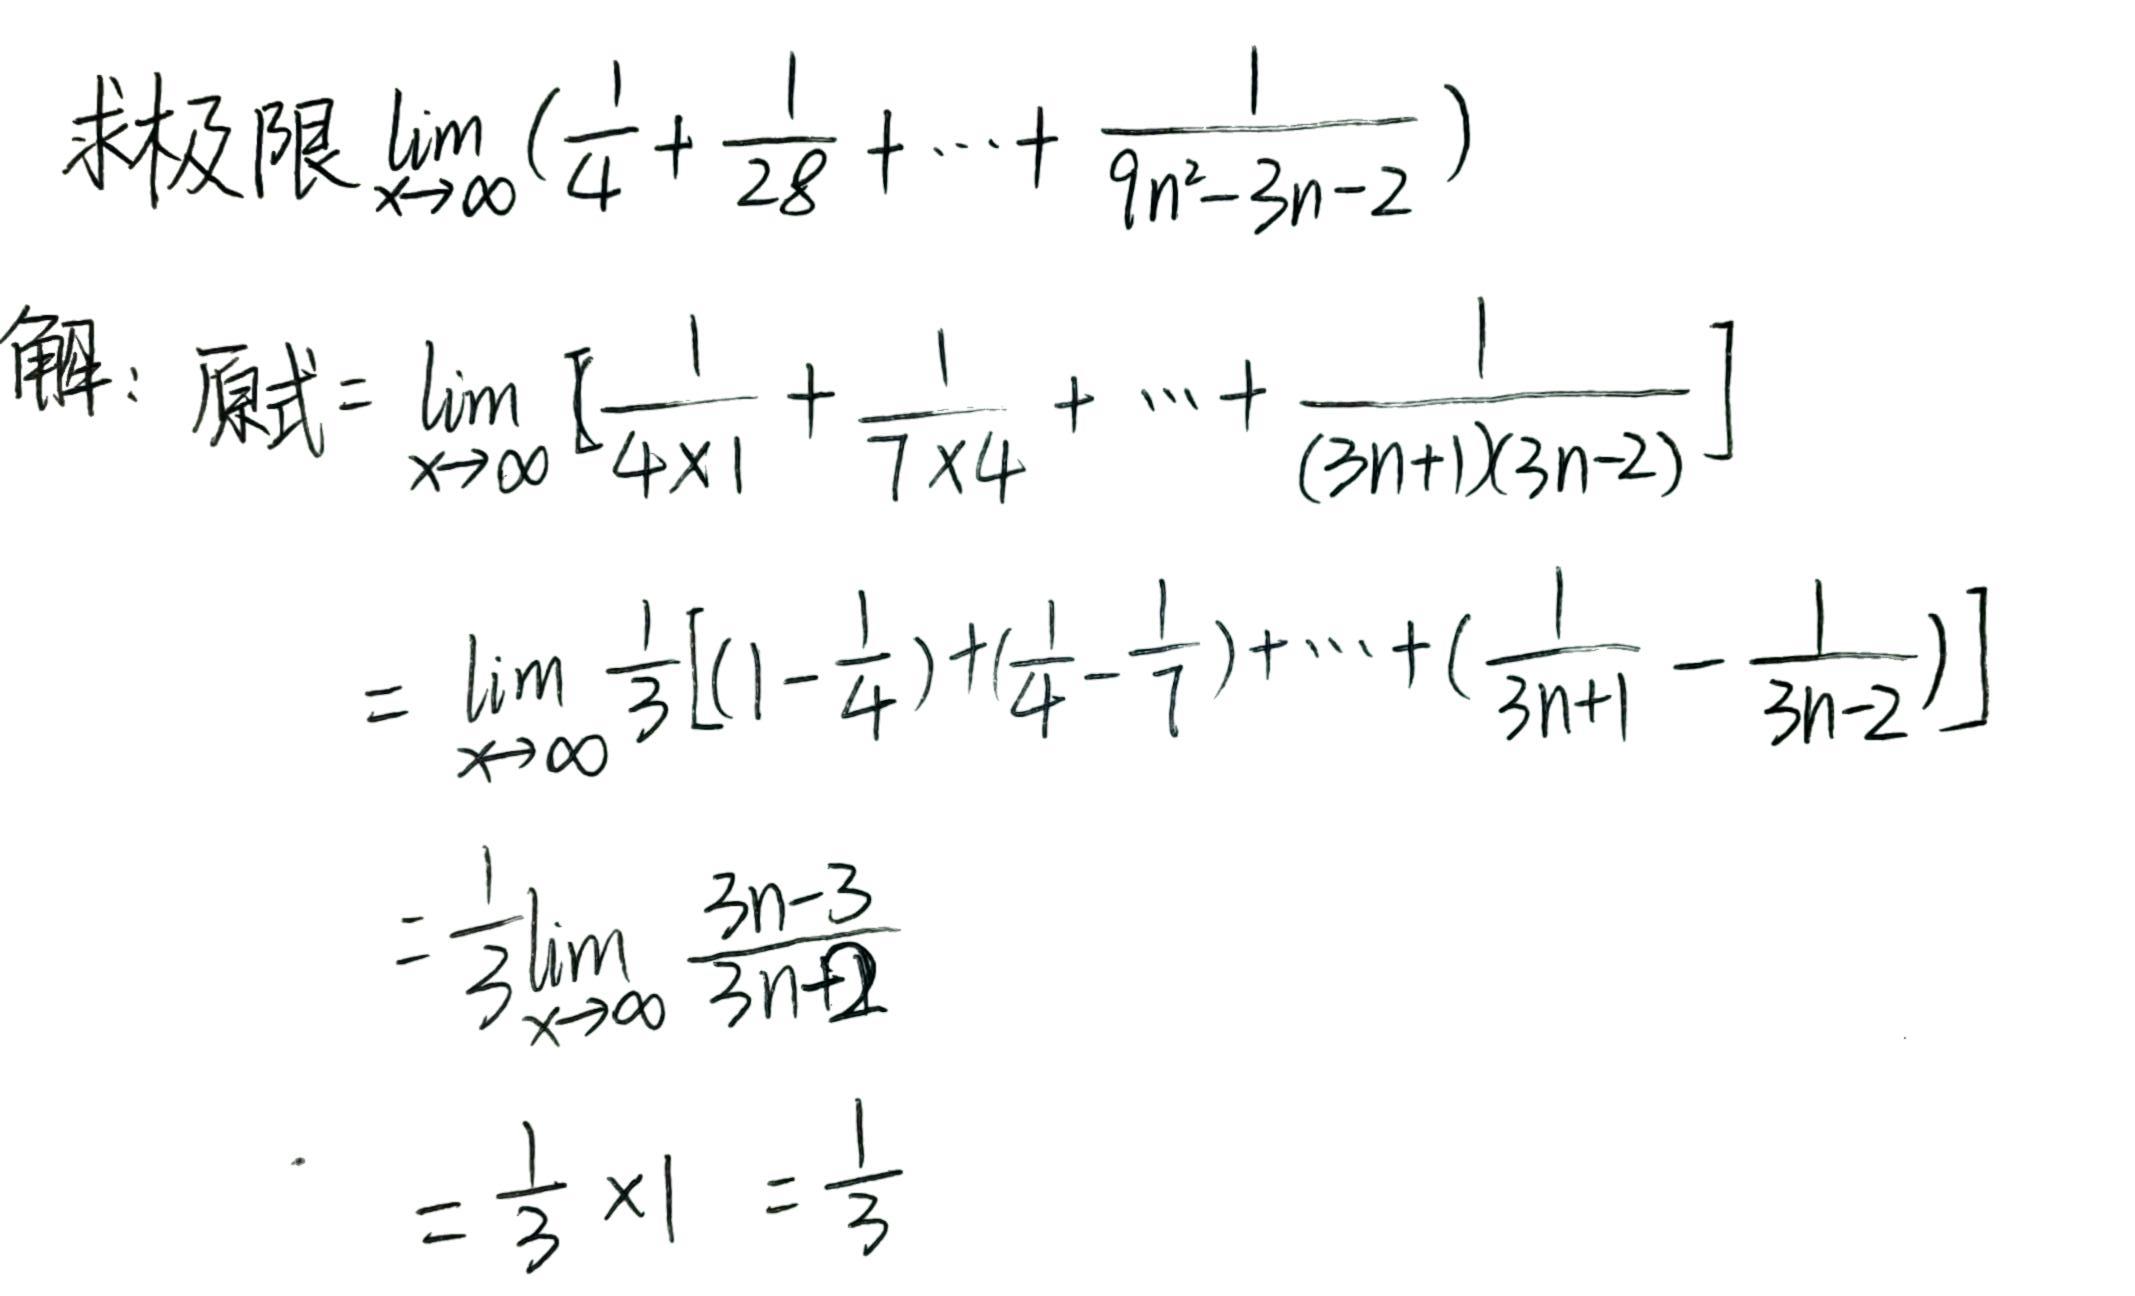 求极限 lim x→∞ (1/4 + 1/28 + ⋯ + 1/(9n²-3n-2))
解: 原式 = lim x→∞ [1/(4×1) + 1/(7×4) + ⋯ + 1/((3n+1)(3n-2))]
= lim x→∞ 1/3 [(1 - 1/4) + (1/4 - 1/7) + ⋯ + (1/(3n+1) - 1/(3n-2))]
= 1/3 lim x→∞ (3n-3)/(3n+2)
= 1/3 ×1 = 1/3